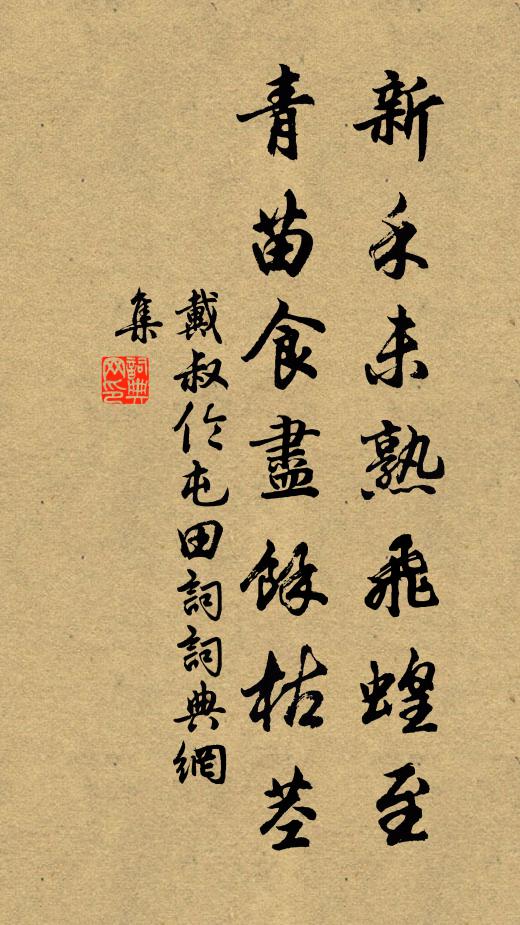 新禾未熟飛蝗至
青苗食盡餘枯莖
戴叔伦屯田詞詞典網
集
詞典
网印